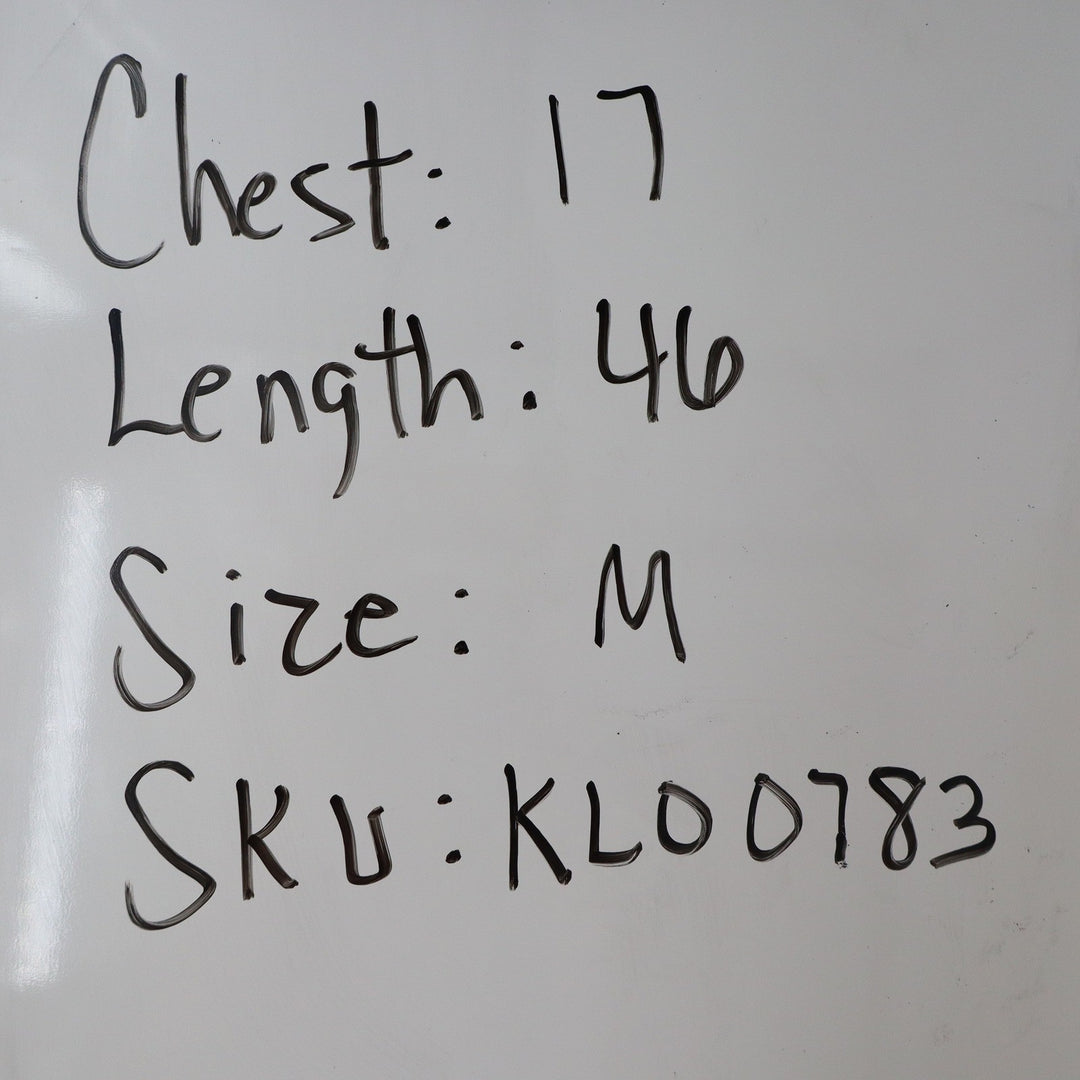 Chest: 17
Length: 46
Size: M
SKU: KL00783